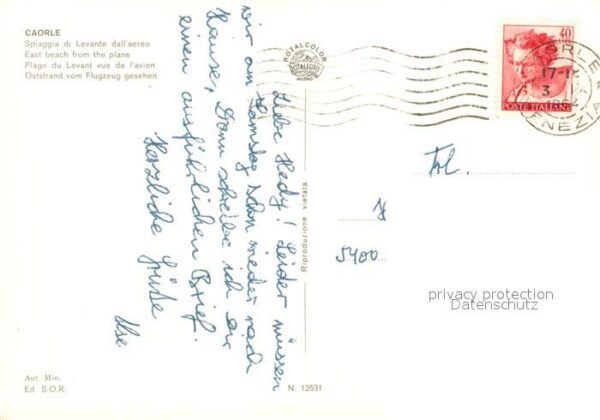 CAORLE
Spiaggia di Levante dall'aereo
East beach from the plane
Plage du Levant vue de l'avion
Oststrand vom Flugzeug gesehen
ROTALCOLOR
ROTALFOTO
MILANO
40
POSTE ITALIANE
17-18
3
VENEZIA
Liebe Hedy! Leider müssen
wir am Samstag schon wieder nach
Hause. Dann schreibe ich Dir
einen ausführlichen Brief.
Herzliche Grüße
Ilse
Riproduzione vietata
Frl.
5400
privacy protection
Datenschutz
Aut. Min.
Ed. S.O.R.
N. 12531